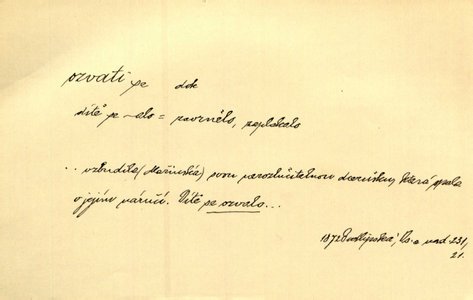 ozvati se dok
dítě se -alo = zavrnělo, zaplakalo
.. vzbudila (Mařinka) svou nerozlučitelnou dcerušku, která spala
v jejím náručí. Dítě se ozvalo...
1872 Podlipská, Os a nad 231,
21.